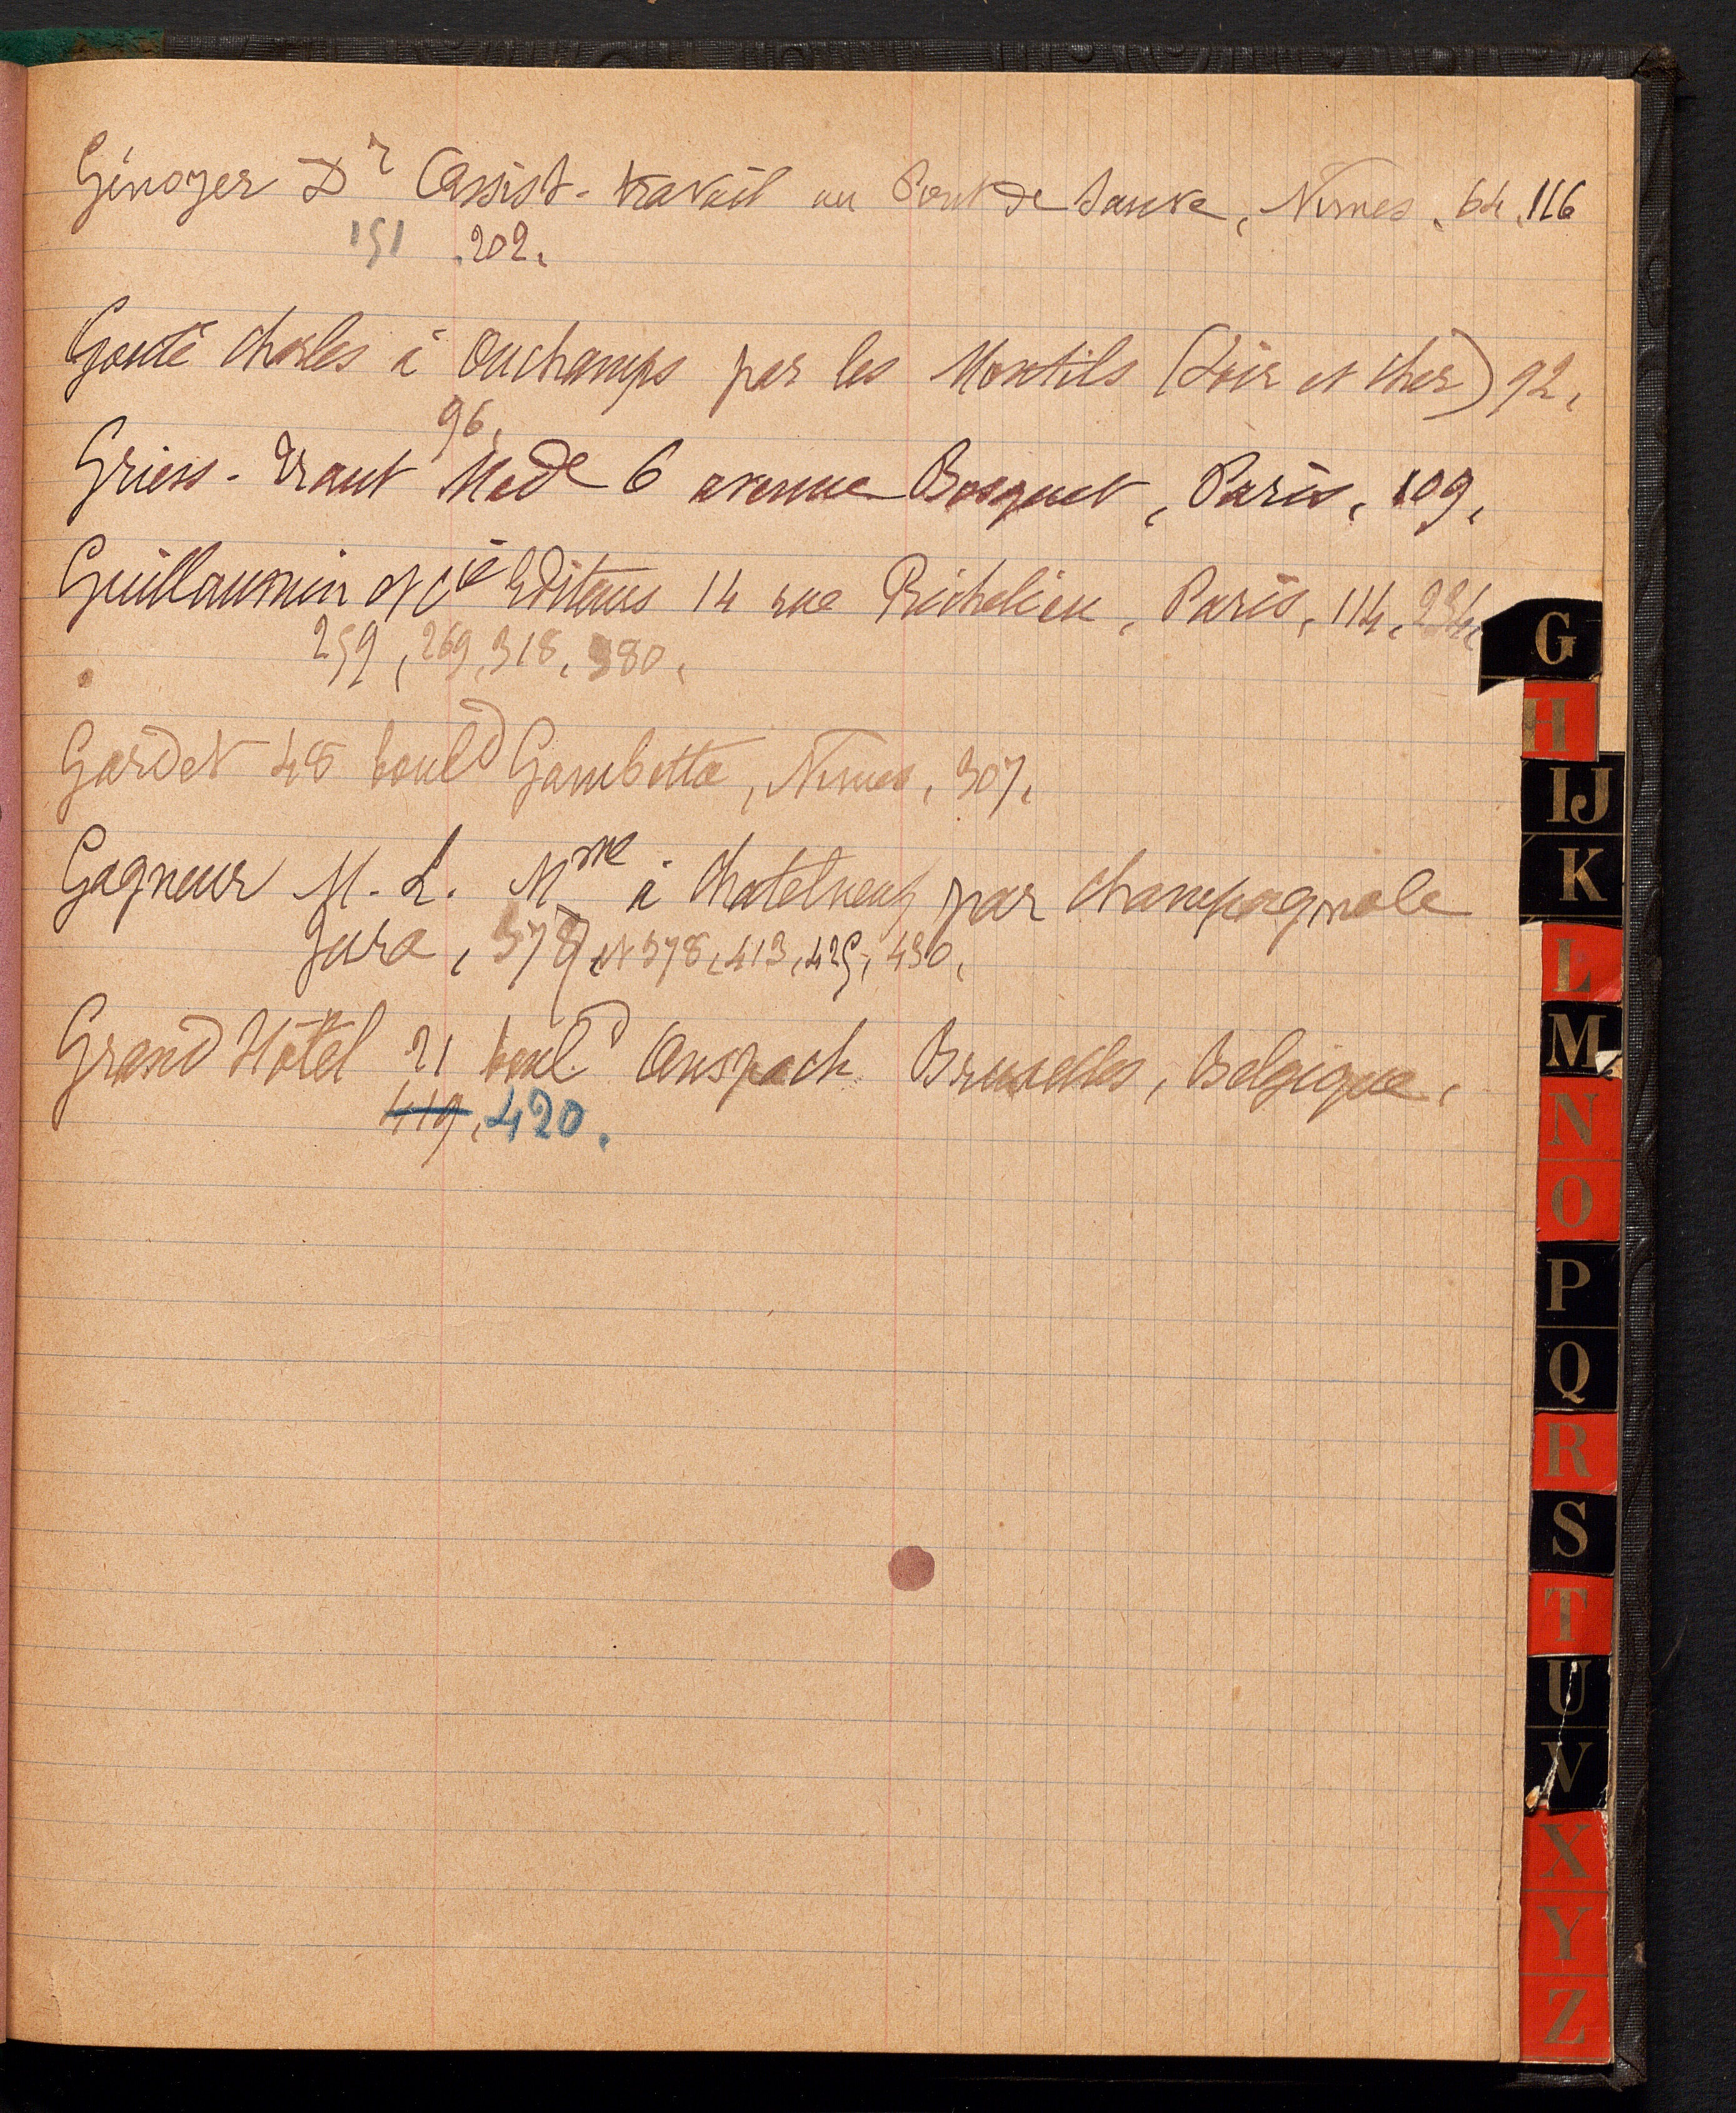 Génoyer Dr Assist-travail au Pont de Sauve, Nimes. 64. 116
151 .202.
Gouté Charles à Ouchamps par les Montils (Loir et Cher) 92.
96.
Griess-Traut Made 6 avenue Bosquet, Paris, 109.
Guillaumin et Cie Editeurs 14 rue Richelieu, Paris, 114. 234.
259, 269, 318, 380.
Gardet 48 bould Gambetta, Nimes, 307.
Gagneur M. L. Mme à Chatelneuf par Champagnole
Jura, et 378, 413, 425, 430.
Grand Hôtel 21 bould Anspach Bruxelles, Belgique,
419, 420.
G
H
IJ
K
L
M
N
O
P
Q
R
S
T
U
V
X
Y
Z